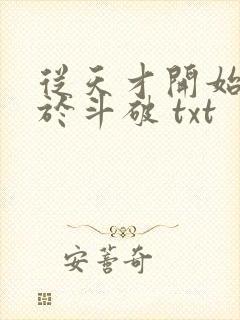 從天才開始
於斗破 txt
安薔奇